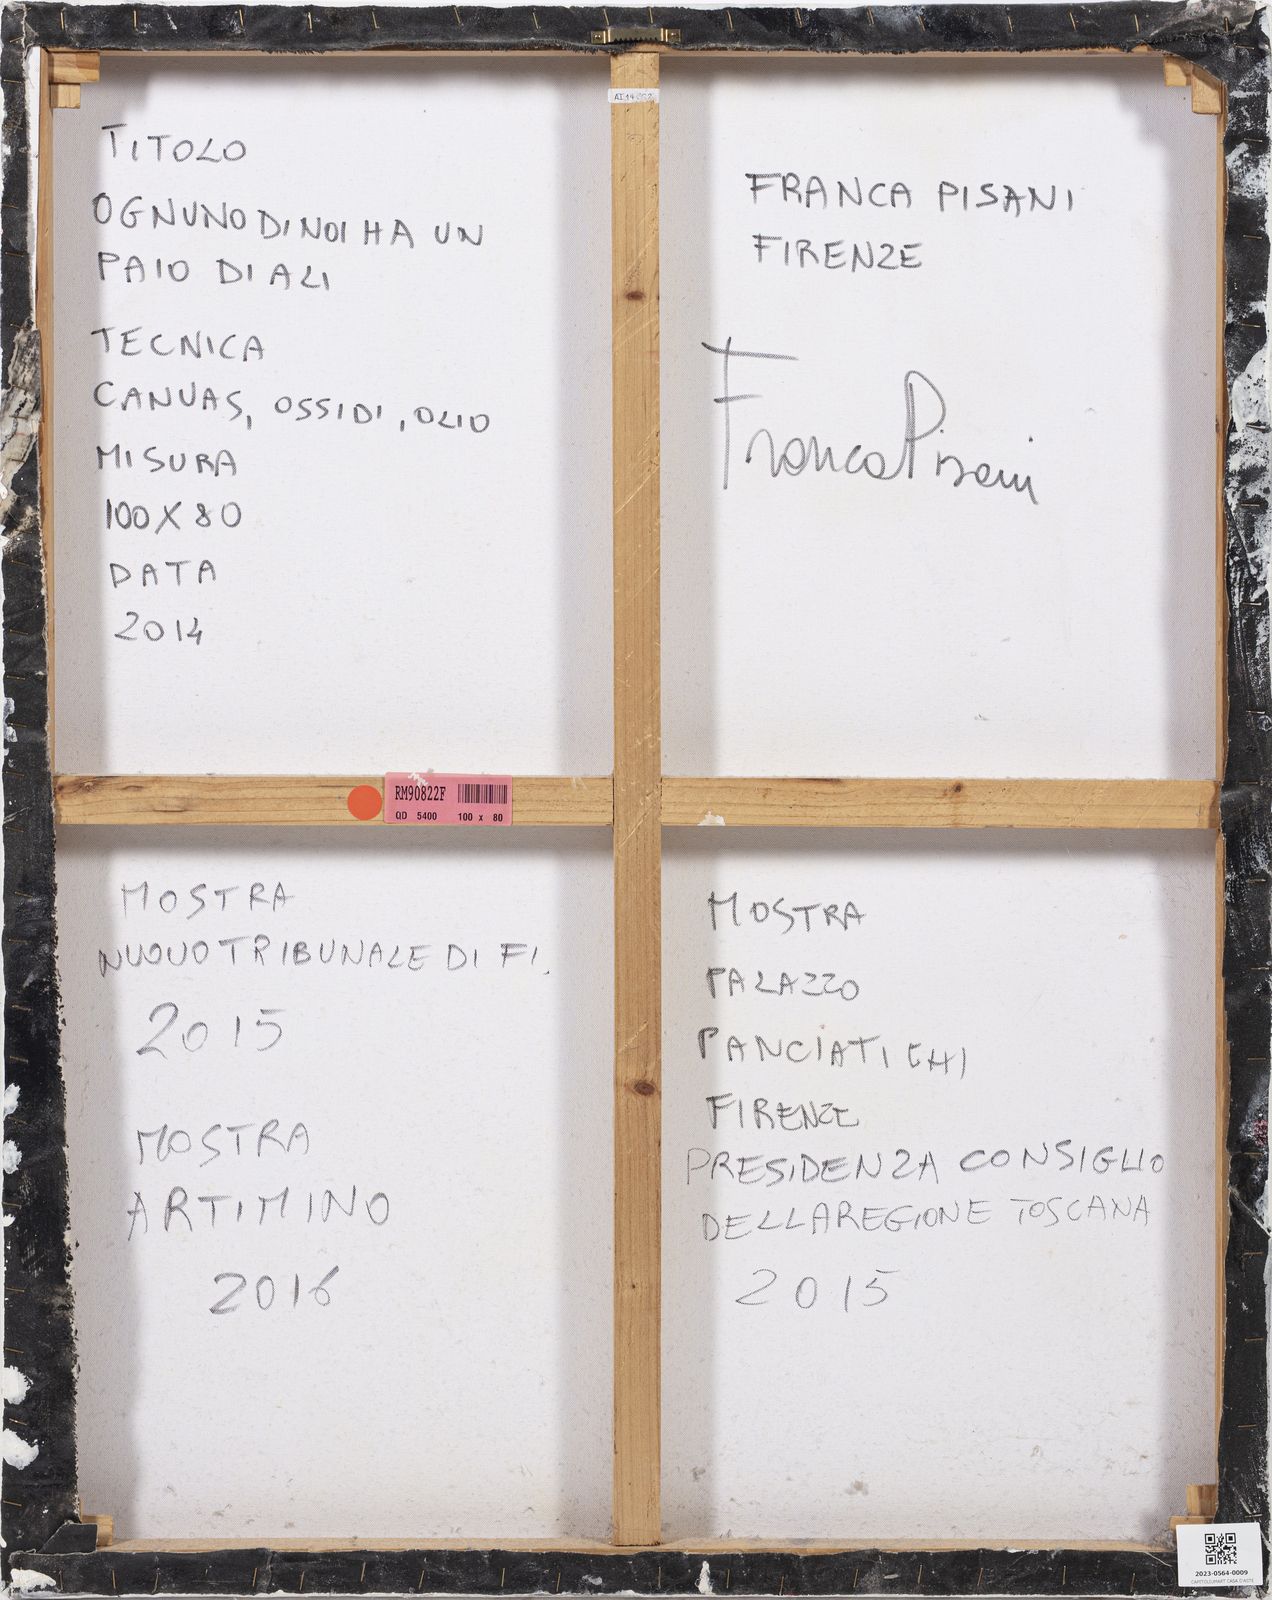 AI14
TITOLO
OGNUNO DI NOI HA UN
PAIO DI ALI
TECNICA
CANVAS, OSSIDI, OLIO
MISURA
100 X 80
DATA
2014
FRANCA PISANI
FIRENZE
Franca Pisani
RM90822F
QD 5400 100 x 80
MOSTRA
NUOVO TRIBUNALE DI FI.
2015
MOSTRA
ARTIMINO
2016
MOSTRA
PALAZZO
PANCIATICHI
FIRENZE
PRESIDENZA CONSIGLIO
DELLA REGIONE TOSCANA
2015
2023-0564-0009
CAPITOLIUMART CASA D'ASTE